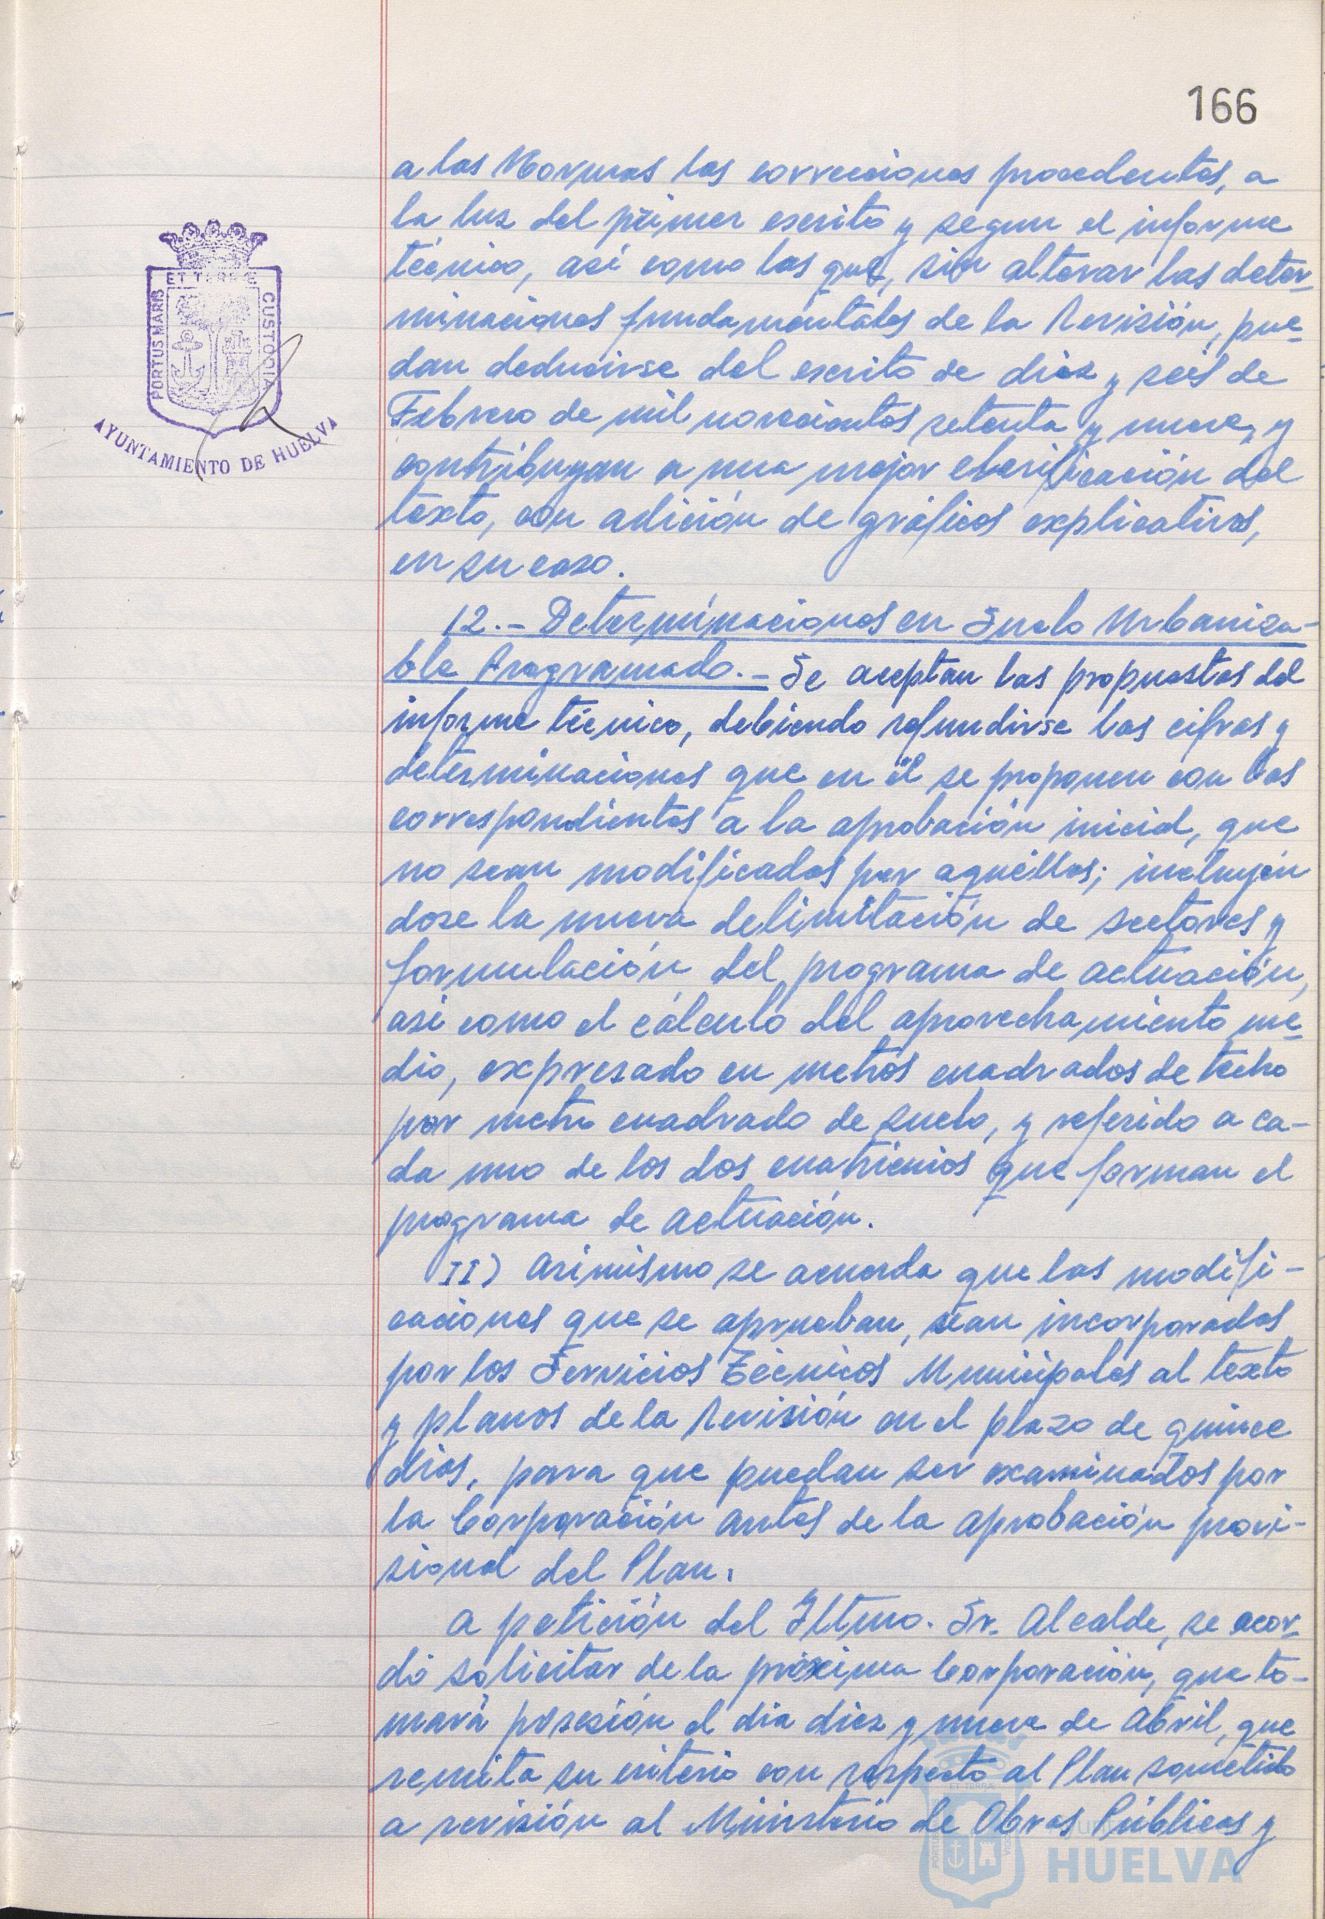 166
a las Normas las correcciones procedentes, a
la luz del primer escrito y segun el informe
técnico, así como las que, sin alterar las deter-
minaciones fundamentales de la Revisión, pue-
dan deducirse del escrito de diez y seis de
Febrero de mil novecientos setenta y nueve, y
contribuyan a una mejor clarificación del
texto, con adición de gráficos explicativos,
en su caso.
12.- Determinaciones en Suelo Urbaniza-
ble Programado.- Se aceptan las propuestas del
informe técnico, debiendo refundirse las cifras y
determinaciones que en él se proponen con las
correspondientes a la aprobación inicial, que
no sean modificadas por aquéllas; incluyén
dose la nueva delimitación de sectores y
formulación del programa de actuación,
así como el cálculo del aprovechamiento me-
dio, expresado en metros cuadrados de techo
por metro cuadrado de suelo, y referido a ca-
da uno de los dos cuatrienios que forman el
programa de actuación.
II) Asimismo se acuerda que las modifi-
caciones que se aprueban, sean incorporadas
por los Servicios Técnicos Municipales al texto
y planos de la Revisión en el plazo de quince
dias, para que puedan ser examinados por
la Corporación antes de la aprobación provi-
sional del Plan.
A petición del Iltmo. Sr. Alcalde, se acor-
dó solicitar de la próxima Corporación, que to-
mará posesión el dia diez y nueve de Abril, que
remita su criterio con respecto al Plan sometido
a revisión al Ministerio de Obras Públicas y
PORTUS MARIS
ET TERRE
CUSTODIA
AYUNTAMIENTO DE HUELVA
HUELVA